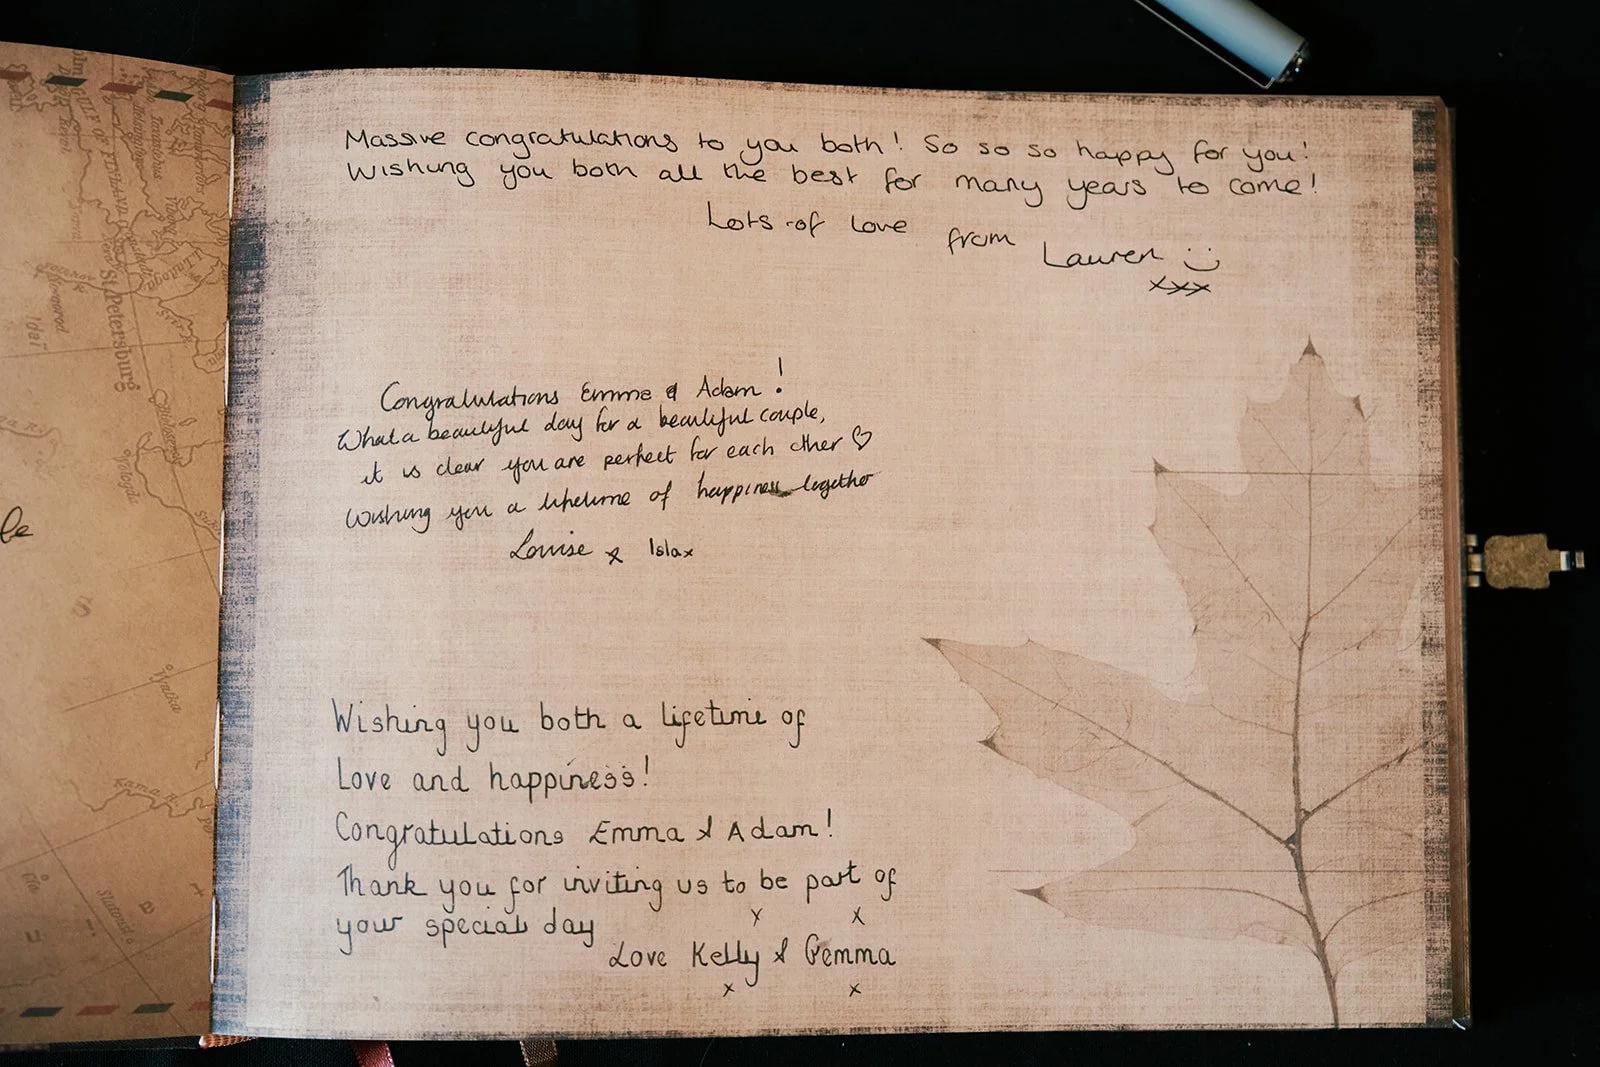 Massive congratulations to you both! So so so happy for you!
Wishing you both all the best for many years to come!
Lots of love from Lauren :)
xxx
Congratulations Emma & Adam!
What a beautiful day for a beautiful couple,
it is clear you are perfect for each other ♡
Wishing you a lifetime of happiness together
Louise x Isla x
Wishing you both a lifetime of
Love and happiness!
Congratulations Emma & Adam!
Thank you for inviting us to be part of
your special day
x x
Love Kelly & Gemma
x x
le
St Petersburg